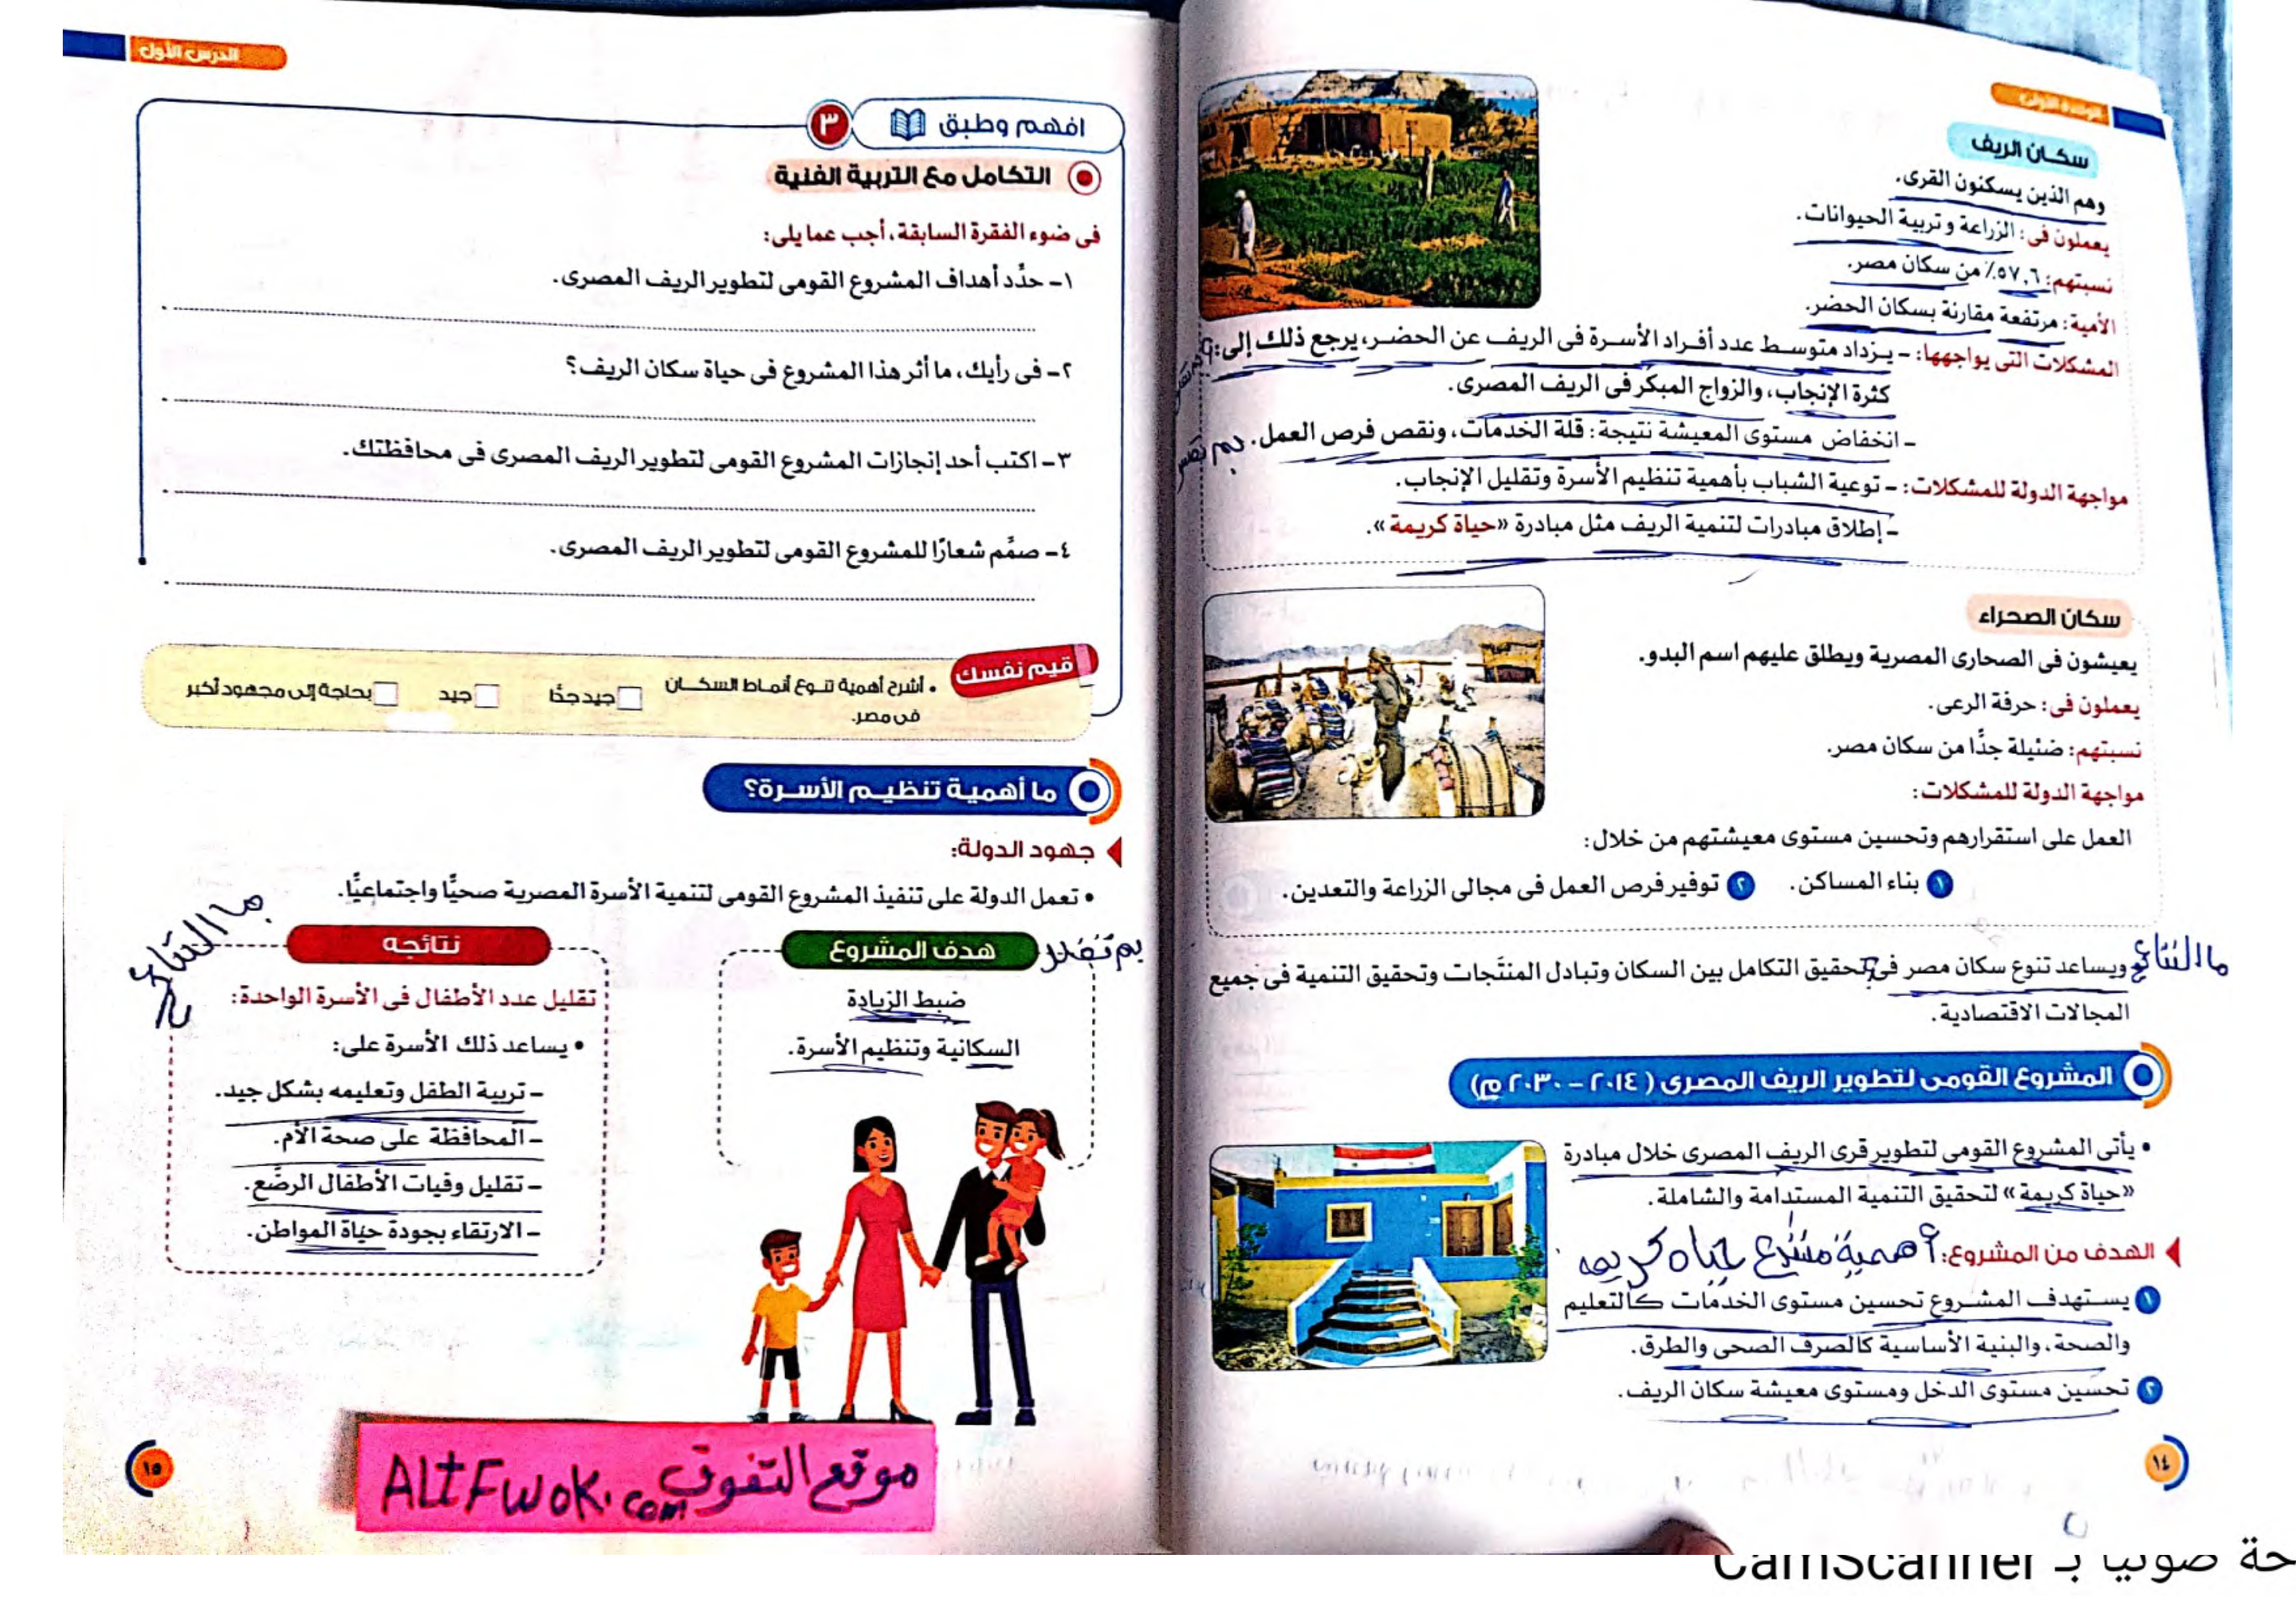 الوحدة الأولى
سكان الريف
وهم الذين يسكنون القرى.
يعملون فى: الزراعة وتربية الحيوانات.
نسبتهم: ٥٧,٦٪ من سكان مصر.
الأمية: مرتفعة مقارنة بسكان الحضر.
المشكلات التى يواجهها: - يزداد متوسط عدد أفراد الأسرة فى الريف عن الحضر، يرجع ذلك إلى:
كثرة الإنجاب، والزواج المبكر فى الريف المصرى.
- انخفاض مستوى المعيشة نتيجة: قلة الخدمات، ونقص فرص العمل. بم تفسر
مواجهة الدولة للمشكلات: - توعية الشباب بأهمية تنظيم الأسرة وتقليل الإنجاب.
- إطلاق مبادرات لتنمية الريف مثل مبادرة «حياة كريمة».
سكان الصحراء
يعيشون فى الصحارى المصرية ويطلق عليهم اسم البدو.
يعملون فى: حرفة الرعى.
نسبتهم: ضئيلة جدًّا من سكان مصر.
مواجهة الدولة للمشكلات:
العمل على استقرارهم وتحسين مستوى معيشتهم من خلال:
١ بناء المساكن. ٢ توفير فرص العمل فى مجالى الزراعة والتعدين.
ما النتائج
ويساعد تنوع سكان مصر فى تحقيق التكامل بين السكان وتبادل المنتَجات وتحقيق التنمية فى جميع
المجالات الاقتصادية.
المشروع القومى لتطوير الريف المصرى (٢٠١٤ - ٢٠٣٠ م)
• يأتى المشروع القومى لتطوير قرى الريف المصرى خلال مبادرة
«حياة كريمة» لتحقيق التنمية المستدامة والشاملة.
الهدف من المشروع: أهمية مشرع حياه كريمه
١ يستهدف المشروع تحسين مستوى الخدمات كالتعليم
والصحة، والبنية الأساسية كالصرف الصحى والطرق.
٢ تحسين مستوى الدخل ومستوى معيشة سكان الريف.
١٤
الدرس الأول
افهم وطبق ٣
التكامل مع التربية الفنية
فى ضوء الفقرة السابقة، أجب عما يلى:
١- حدِّد أهداف المشروع القومى لتطوير الريف المصرى.
٢- فى رأيك، ما أثر هذا المشروع فى حياة سكان الريف؟
٣- اكتب أحد إنجازات المشروع القومى لتطوير الريف المصرى فى محافظتك.
٤- صمِّم شعارًا للمشروع القومى لتطوير الريف المصرى.
قيم نفسك
• أشرح أهمية تنوع أنماط السكان
فى مصر.
جيد جدًّا جيد بحاجة إلى مجهود أكبر
ما أهمية تنظيم الأسرة؟
جهود الدولة:
• تعمل الدولة على تنفيذ المشروع القومى لتنمية الأسرة المصرية صحيًّا واجتماعيًّا.
بم تفسر
هدف المشروع
ضبط الزيادة
السكانية وتنظيم الأسرة.
ما النتائج
نتائجه
تقليل عدد الأطفال فى الأسرة الواحدة:
• يساعد ذلك الأسرة على:
- تربية الطفل وتعليمه بشكل جيد.
- المحافظة على صحة الأم.
- تقليل وفيات الأطفال الرضَّع.
- الارتقاء بجودة حياة المواطن.
موقع التفوق ALtFwok.com
١٥
حة ضوئيا بـ CamScanner